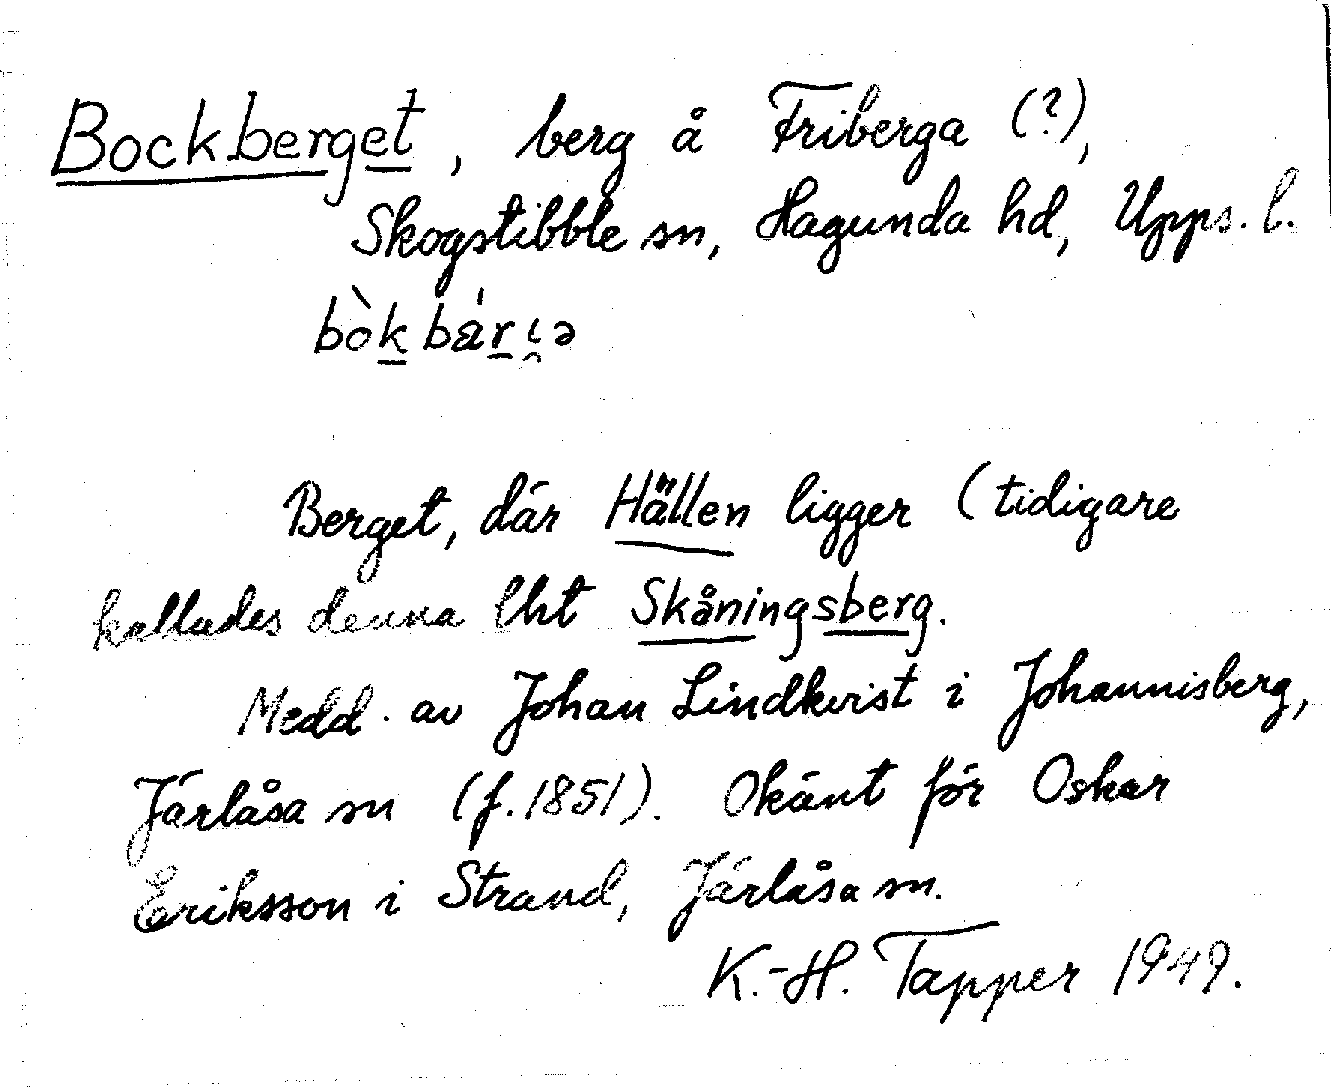 Bockberget, berg å Friberga (?),
Skogstibble sn, Hagunda hd, Upps. l.
bòk bár i̯ə
Berget, där Hällen ligger (tidigare
kallades denna lht Skåningsberg.
Medd. av Johan Lindkvist i Johannisberg,
Järlåsa sn (f. 1851). Okänt för Oskar
Eriksson i Strand, Järlåsa sn.
K.-H. Tapper 1949.